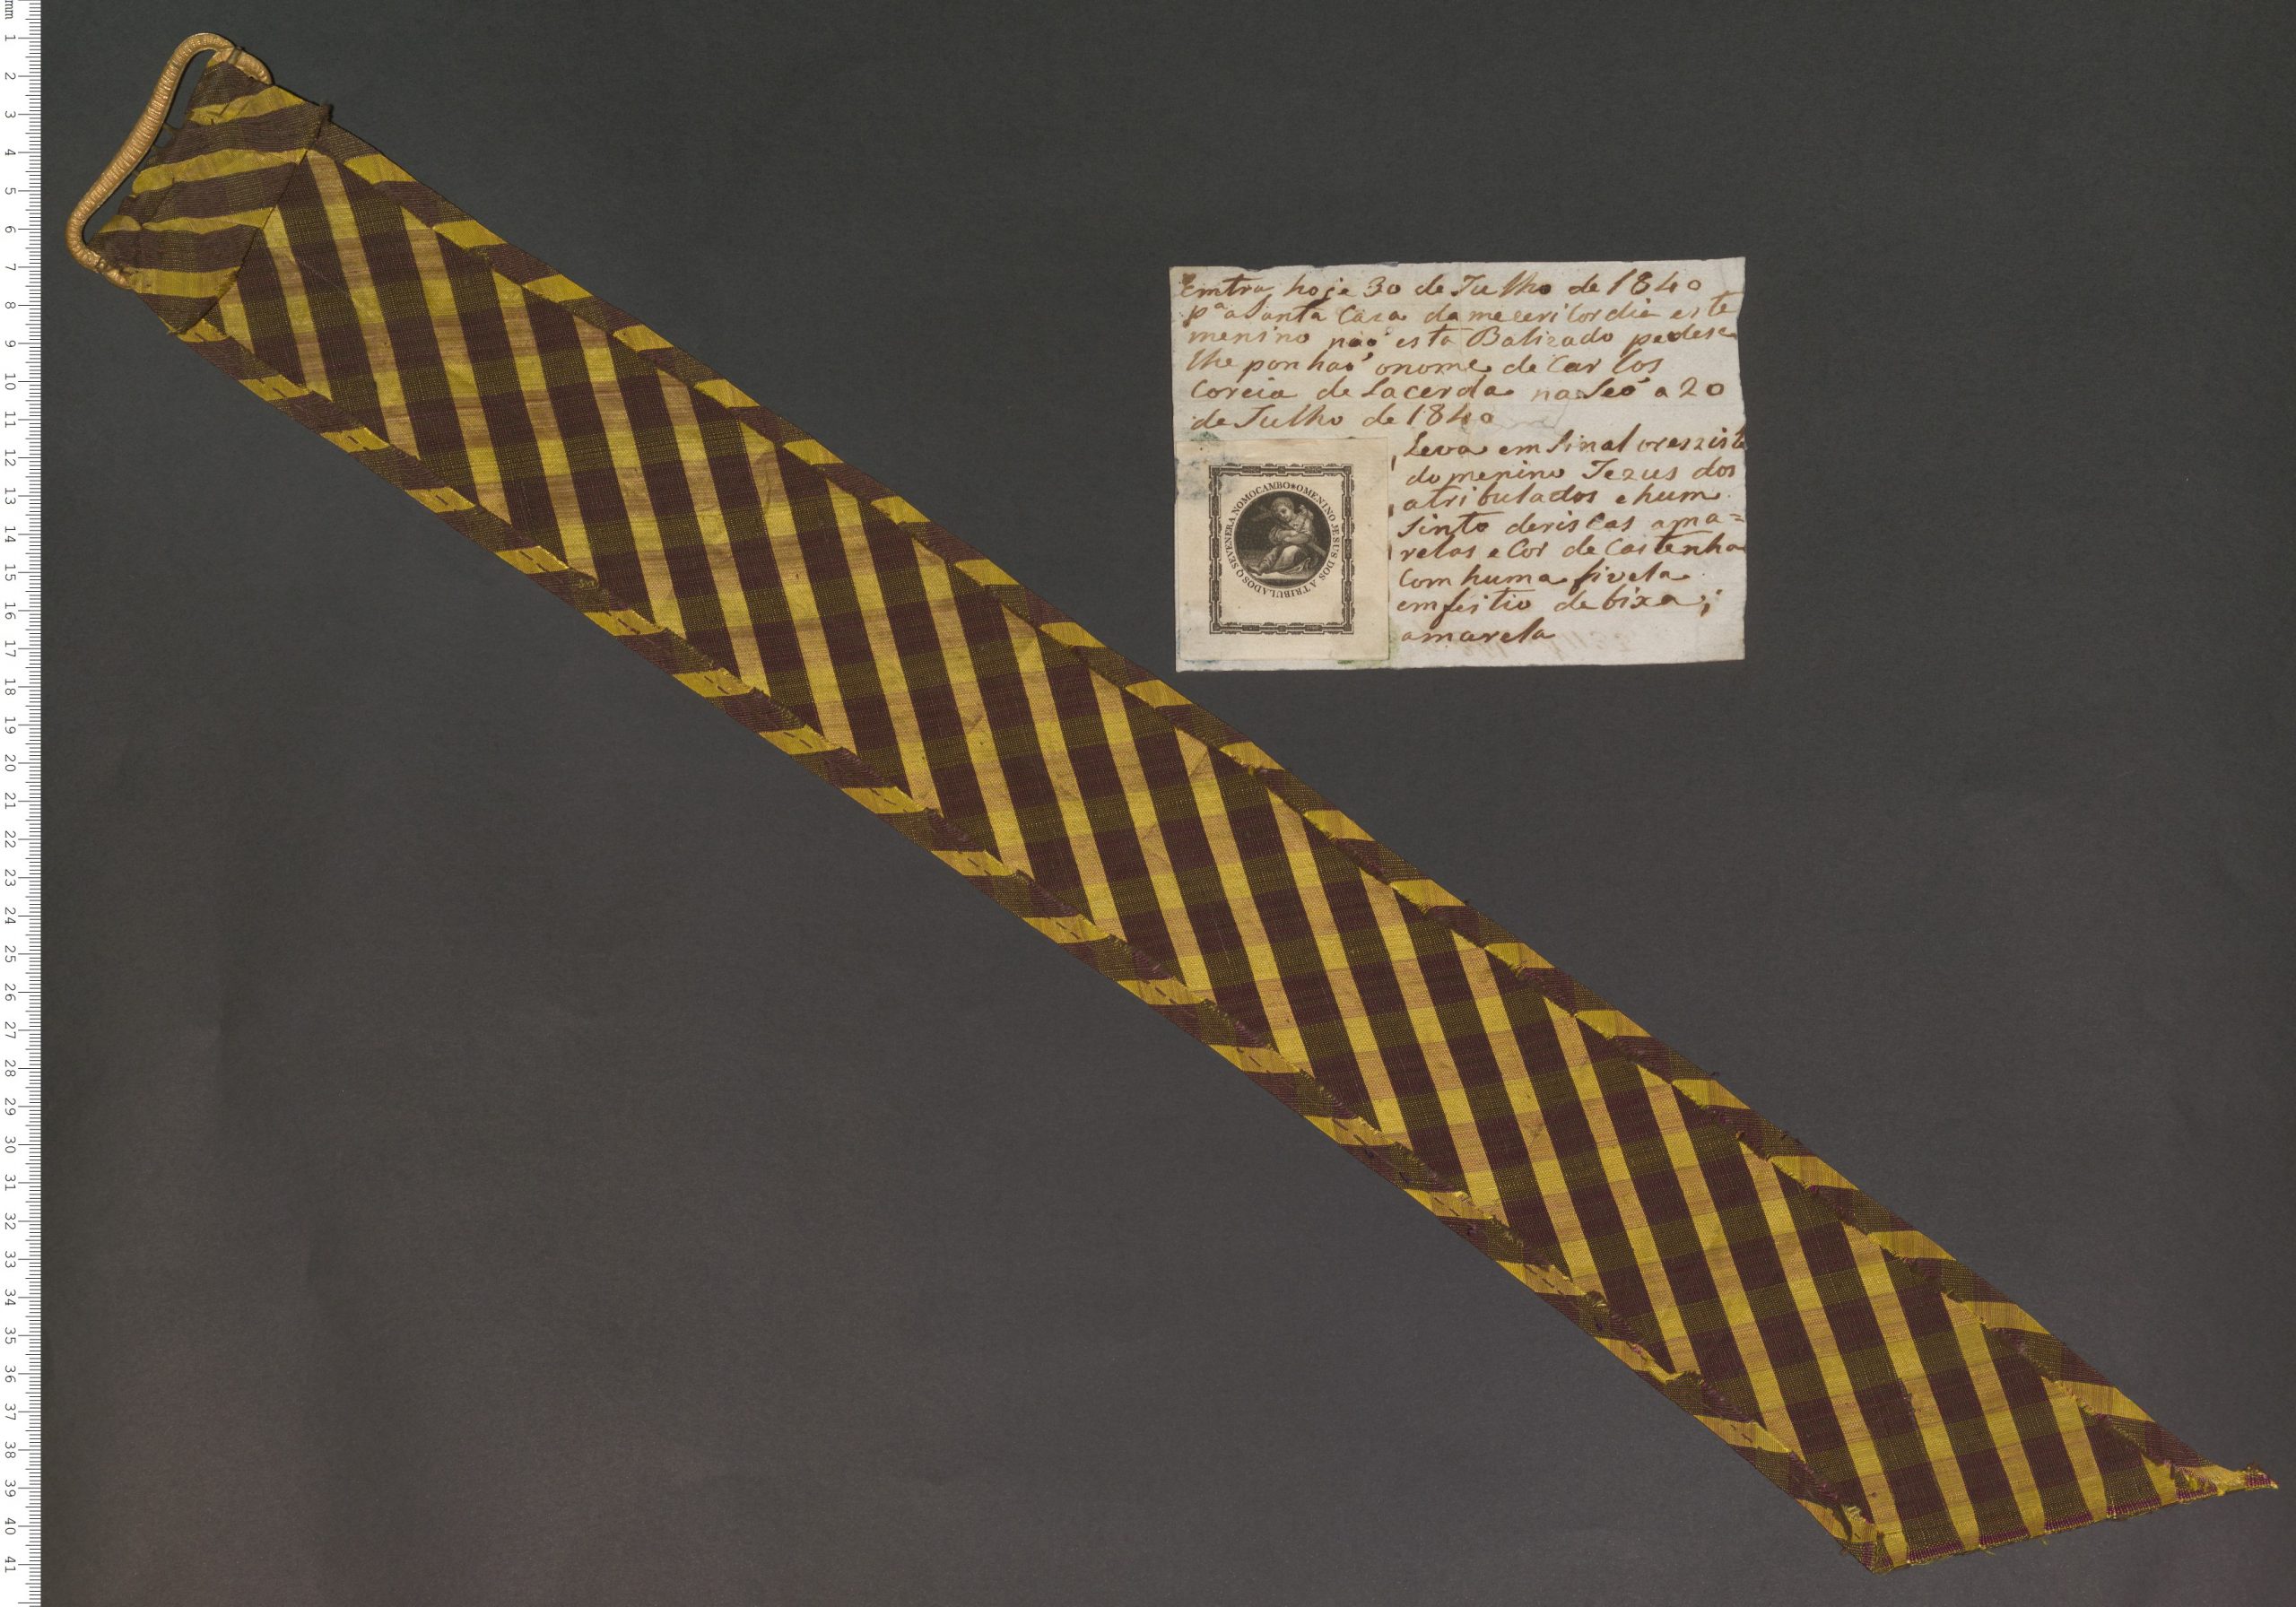 Emtra hoje 30 de Julho de 1840
pª a Santa Caza da mecericordia este
menino não está Batizado pedese
lhe ponhaõ onome de Carlos
Correia de Lacerda naseó a 20
de Julho de 1840
Leva em Sinal
do menino Jezus dos
atribulados e hum
Sinto deriscas ama=
relas e Cor de Castenha
Com huma fivela
emfeitio de bixa;
amarela
O MENINO JESUS DOS ATRIBULADOS Q SEVENERA NOMOCAMBO
mm
1
2
3
4
5
6
7
8
9
10
11
12
13
14
15
16
17
18
19
20
21
22
23
24
25
26
27
28
29
30
31
32
33
34
35
36
37
38
39
40
41